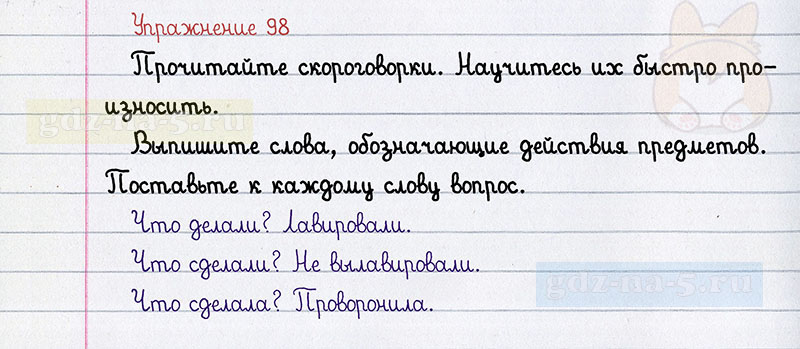 Упражнение 98
Прочитайте скороговорки. Научитесь их быстро про-
износить.
gdz-na-5.ru
Выпишите слова, обозначающие действия предметов.
Поставьте к каждому слову вопрос.
Что делали? Лавировали.
Что сделали? Не вылавировали.
gdz-na-5.ru
Что сделала? Проворонила.